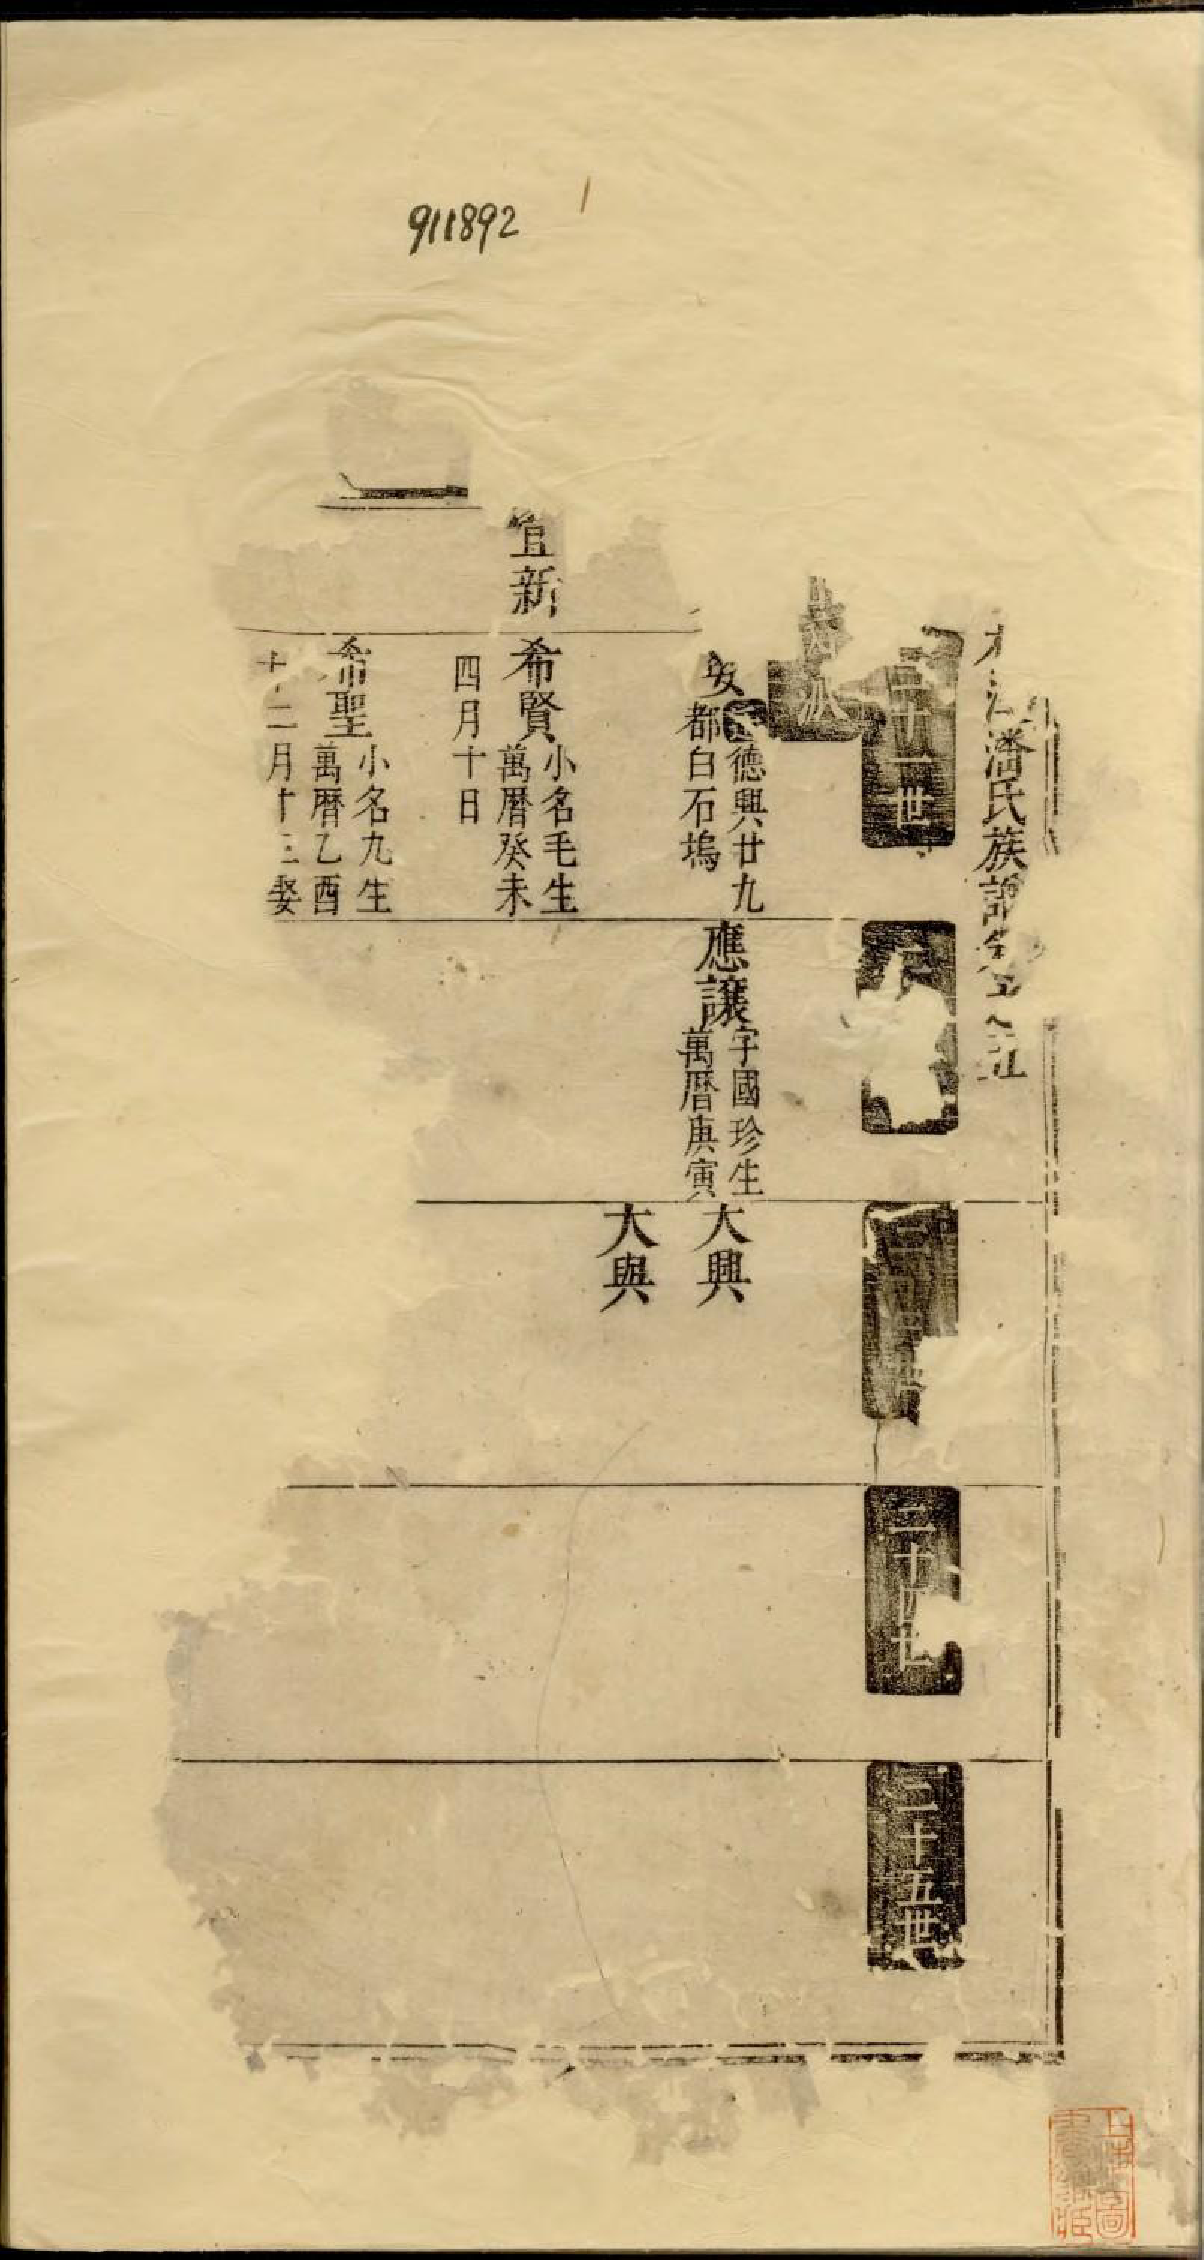 911892
潘氏族譜
二十一世
派
二
二十
二十五世
安
德興廿九
都白石塢
應讓
字國珍生
萬曆庚寅
大興
大與
宜新
希賢
小名毛生
萬曆癸未
四月十日
希聖
小名九生
萬曆乙酉
十二月十三娶